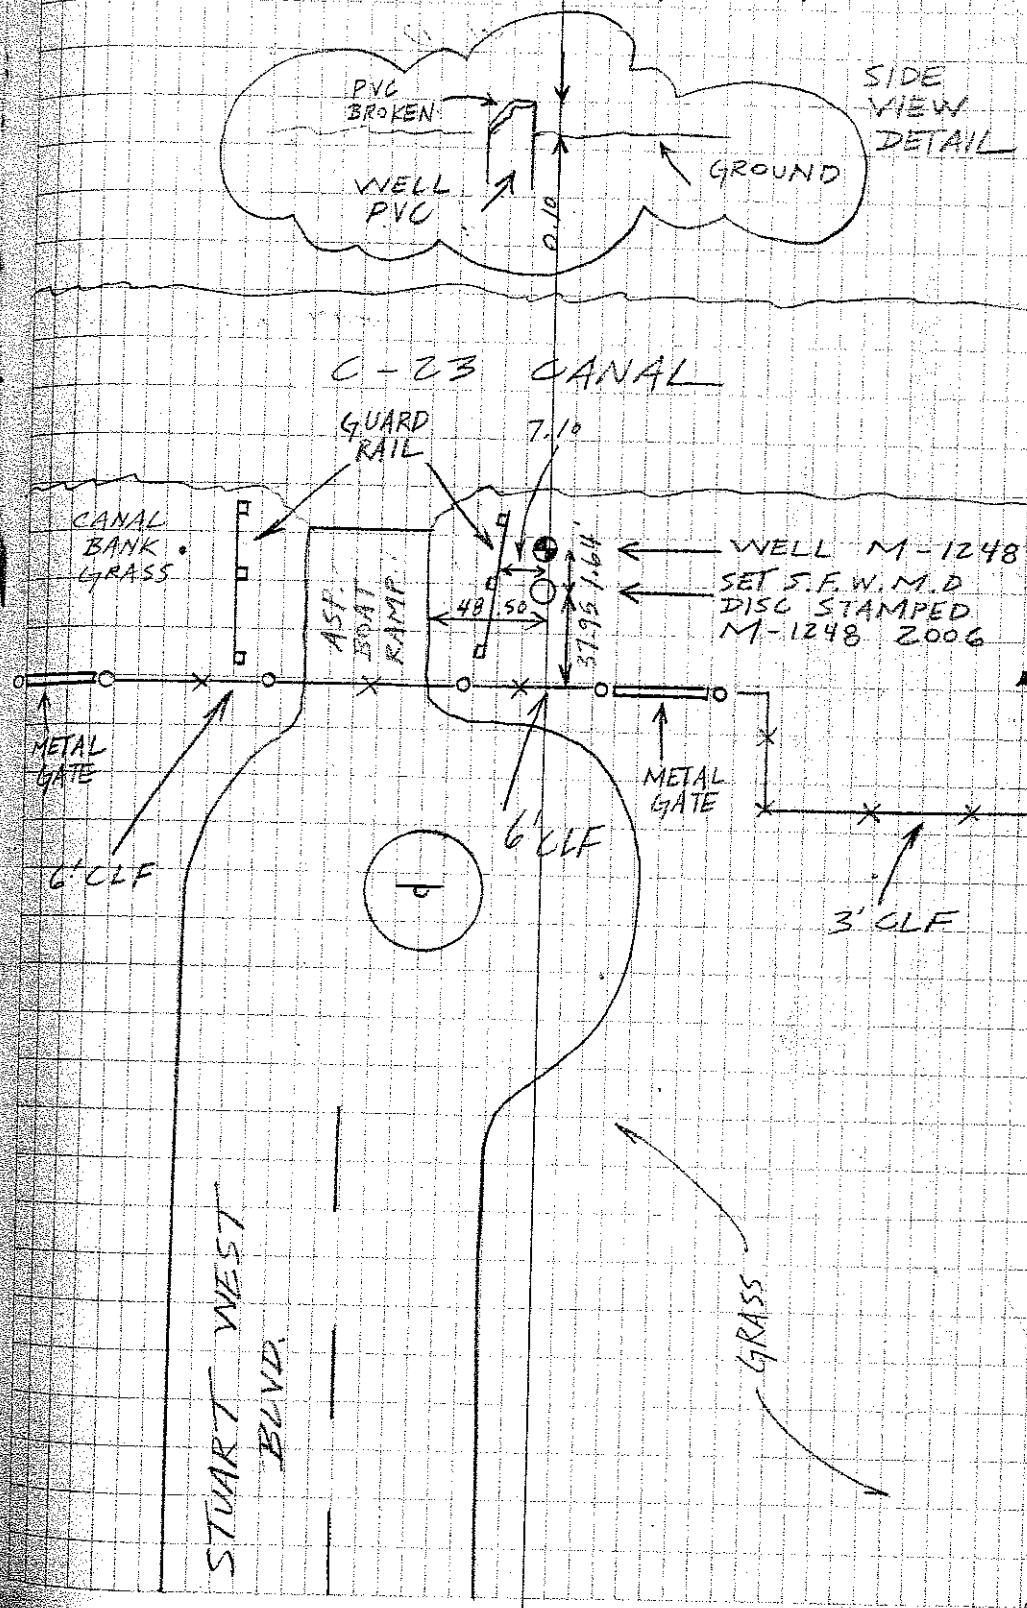 SIDE
VIEW
DETAIL
PVC
BROKEN
GROUND
WELL
PVC
0.10
C-23 CANAL
GUARD
RAIL
7.10
CANAL
BANK
GRASS
ASP.
BOAT
RAMP
48.50
37.95
1.64'
WELL M-1248
SET S.F.W.M.D
DISC STAMPED
M-1248 2006
METAL
GATE
METAL
GATE
6' CLF
6' CLF
3' CLF
GRASS
STUART WEST
BLVD.